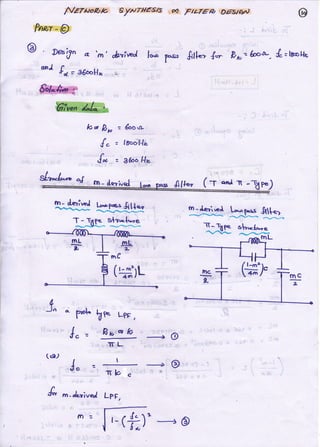 NETWORK SYNTHESIS OR FILTER DESIGN
PART - ©
ⓐ . Design a 'm' derived low pass filter for R₀ = 600Ω . fc = 1800Hz
and f∞ = 3600Hz
Solution :
Given data :
k or R₀ = 600Ω
fc = 1800Hz
f∞ = 3600 Hz
Structure of m-derived low pass filter ( T and π - Type )
m-derived Lowpass filter
T - Type structure
mL/2 mL/2
mC
(1-m²/4m)L
m-derived Lowpass filter
π - Type structure
mL
(1-m²/4m)C
mC/2 mC/2
In a proto type LPF,
fc = R₀ or k / πL → ①
(or)
fc = 1 / πkc → ②
for m-derived LPF,
m = √(1-(fc/f∞)²) → ③